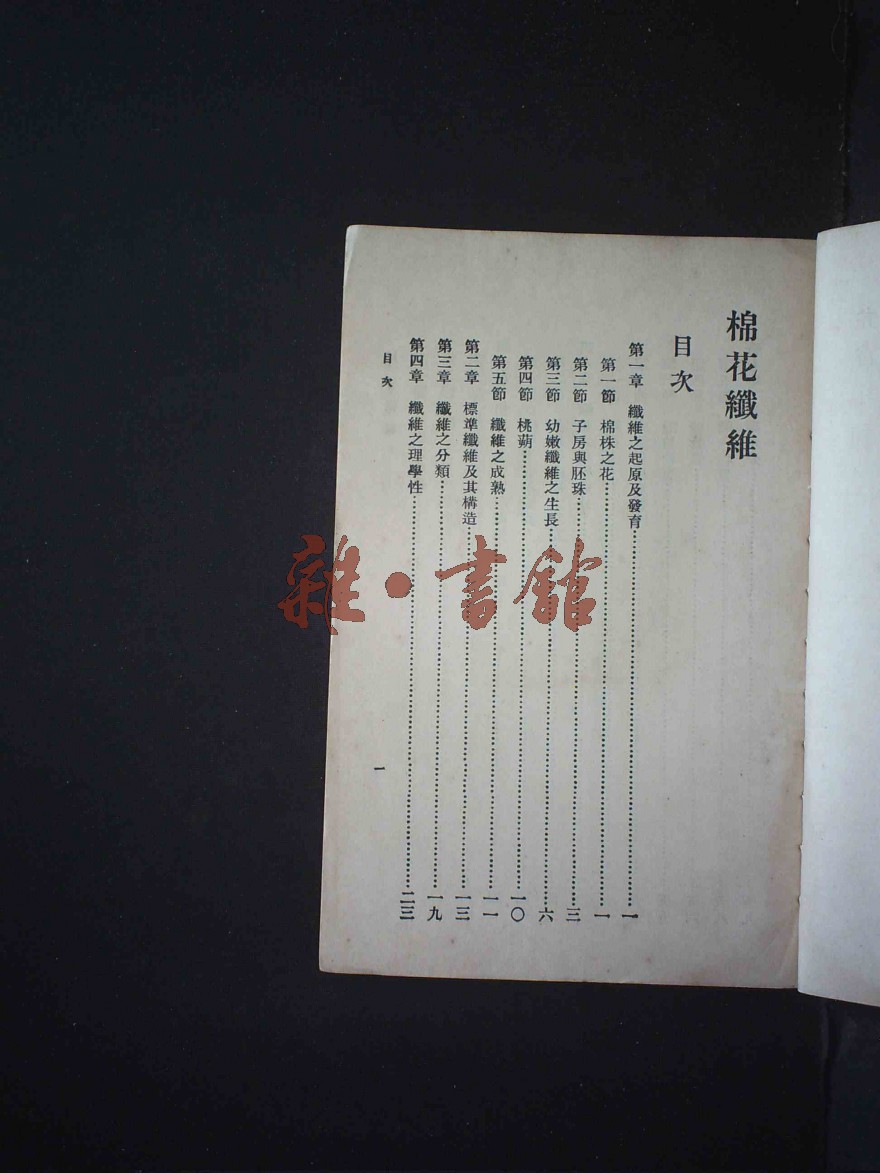 棉花纖維
目次
第一章　纖維之起原及發育……一
第一節　棉株之花……一
第二節　子房與胚珠……三
第三節　幼嫩纖維之生長……六
第四節　桃蒴……一〇
第五節　纖維之成熟……一一
第二章　標準纖維及其構造……一三
第三章　纖維之分類……一九
第四章　纖維之理學性……二三
目次
一
雜·書館